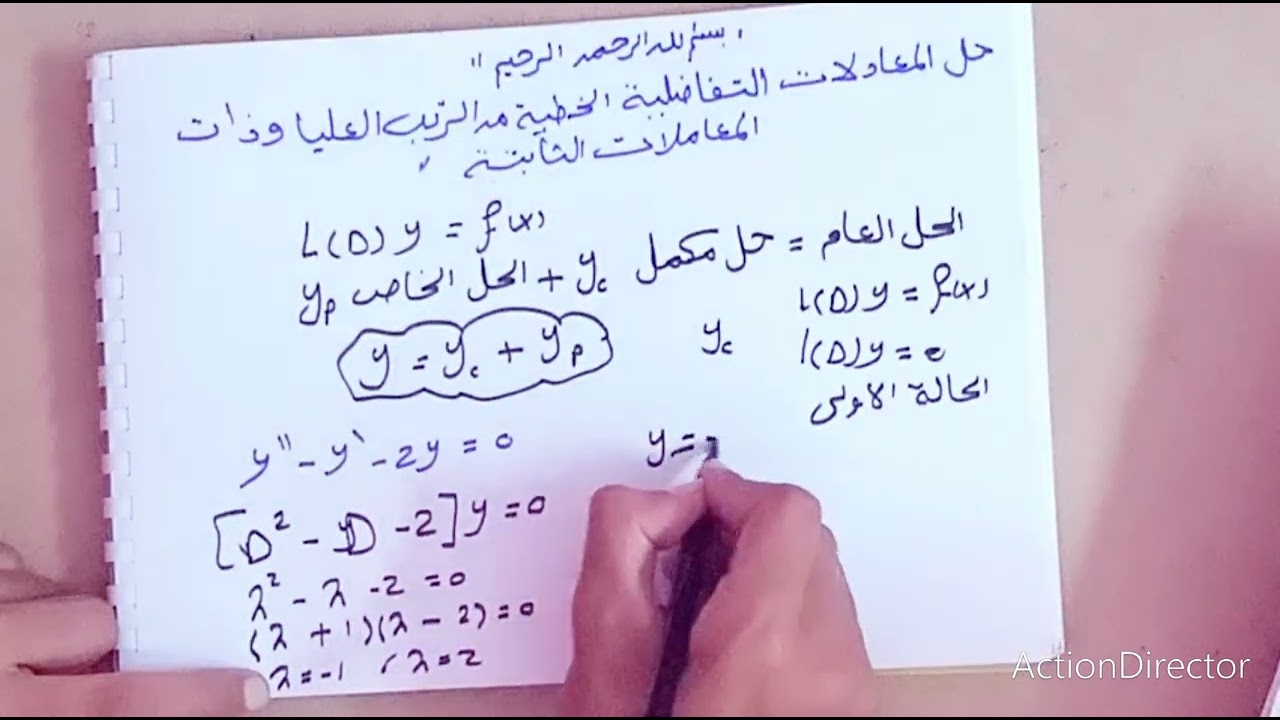 بسم لله الرحمن الرحيم "
حل المعادلات التفاضلية الخطية من الرتب العليا وذات
المعاملات الثابتة
L(D)y = f(x)
الحل العام = حل مكمل y_c + الحل الخاص y_p
L(D)y = f(x)
y = y_c + y_p
y_c L(D)y = 0
الحالة الاولى
y'' - y' - 2y = 0
y =
[D² - D - 2]y = 0
λ² - λ - 2 = 0
(λ + 1)(λ - 2) = 0
λ = -1 , λ = 2
ActionDirector